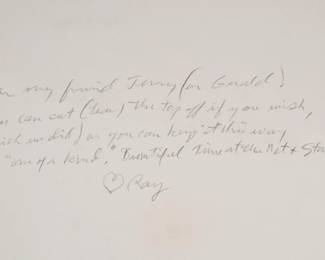 my friend Jerry (or Gerald)
can cut (tear) the top off if you wish,
did) or you can keep it this way
"one of a kind." Beautiful time at the Met & Star
♡ Ray